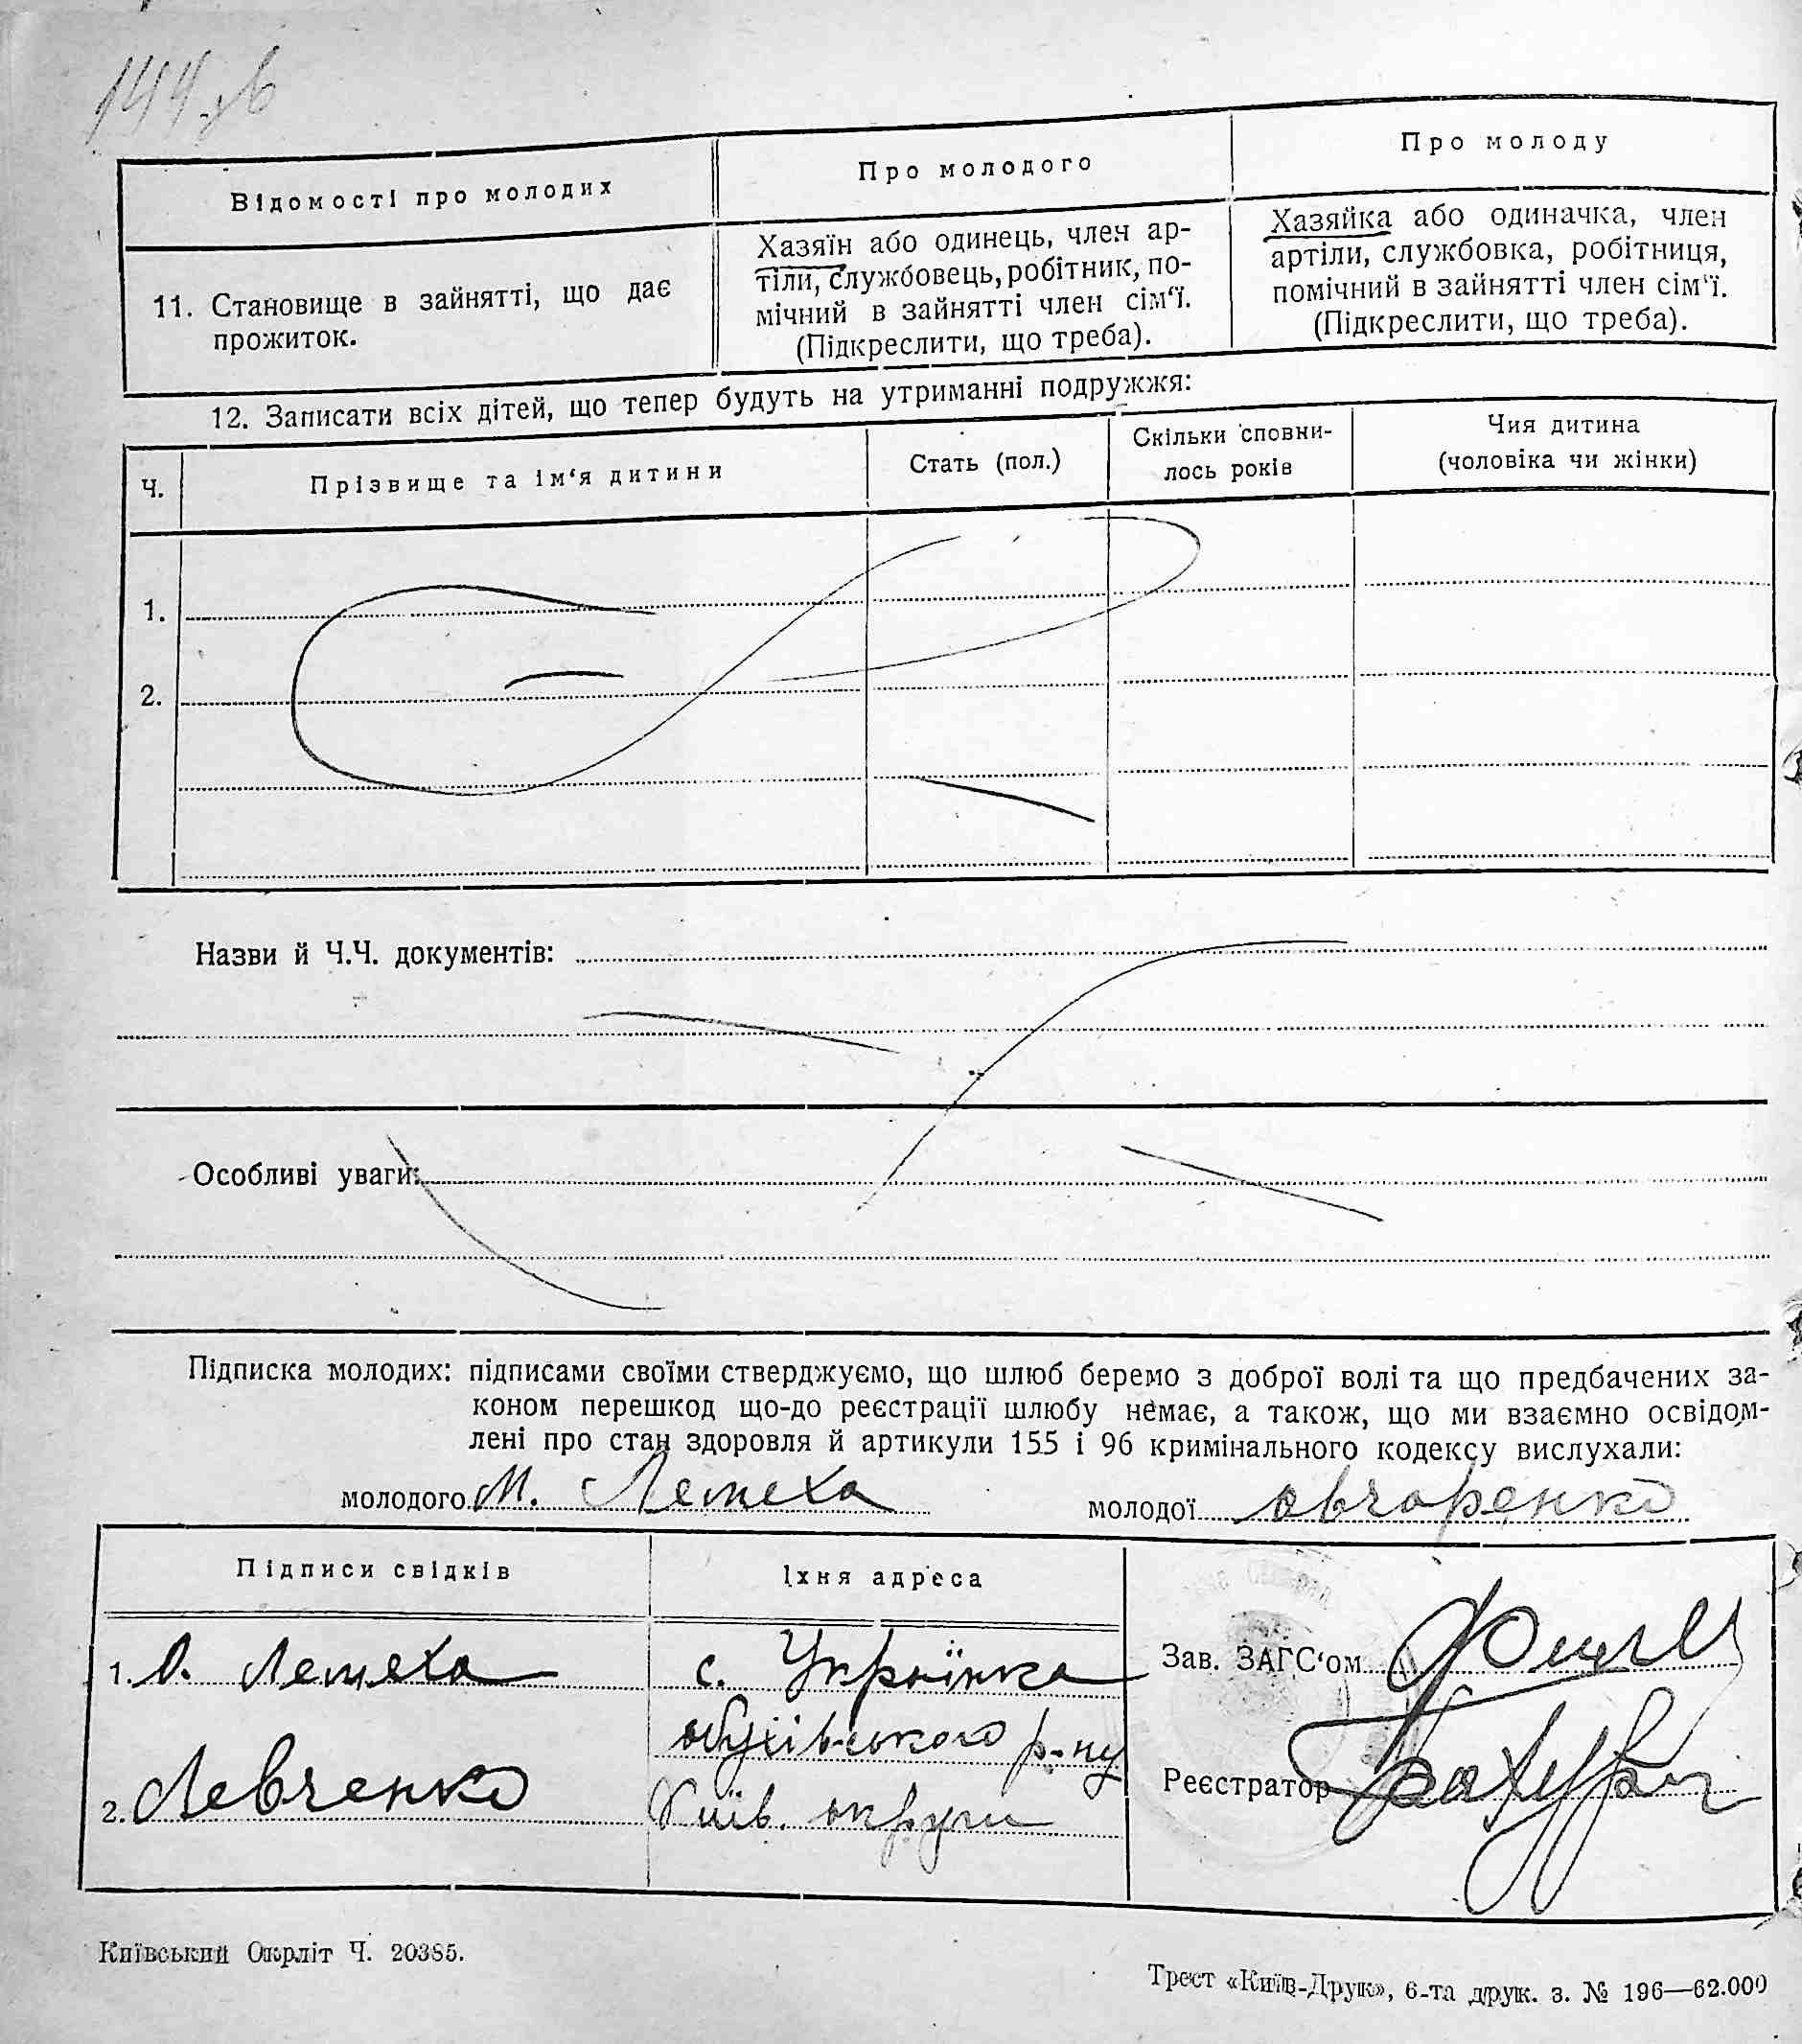 Відомості про молодих
Про молодого
Про молоду
11. Становище в зайнятті, що дає
прожиток.
Хазяїн або одинець, член ар-
тіли, службовець, робітник, по-
мічний в зайнятті член сім'ї.
(Підкреслити, що треба).
Хазяйка або одиначка, член
артіли, службовка, робітниця,
помічний в зайнятті член сім'ї.
(Підкреслити, що треба).
12. Записати всіх дітей, що тепер будуть на утриманні подружжя:
Ч.
Прізвище та ім'я дитини
Стать (пол.)
Скільки сповни-
лось років
Чия дитина
(чоловіка чи жінки)
1.
2.
Назви й Ч.Ч. документів:
Особливі уваги:
Підписка молодих: підписами своїми стверджуємо, що шлюб беремо з доброї волі та що предбачених за-
коном перешкод що-до реєстрації шлюбу немає, а також, що ми взаємно освідом-
лені про стан здоровля й артикули 155 і 96 кримінального кодексу вислухали:
молодого М. Лемеха молодої Овчаренко
Підписи свідків
Їхня адреса
1. О. Лемеха
с. Українка
Обухівського р-ну
2. Левченко
Київ. округи
Зав. ЗАГС'ом
Реєстратор
Київський Окрліт Ч. 20385.
Трест «Київ-Друк», 6-та друк. з. № 196—62.000